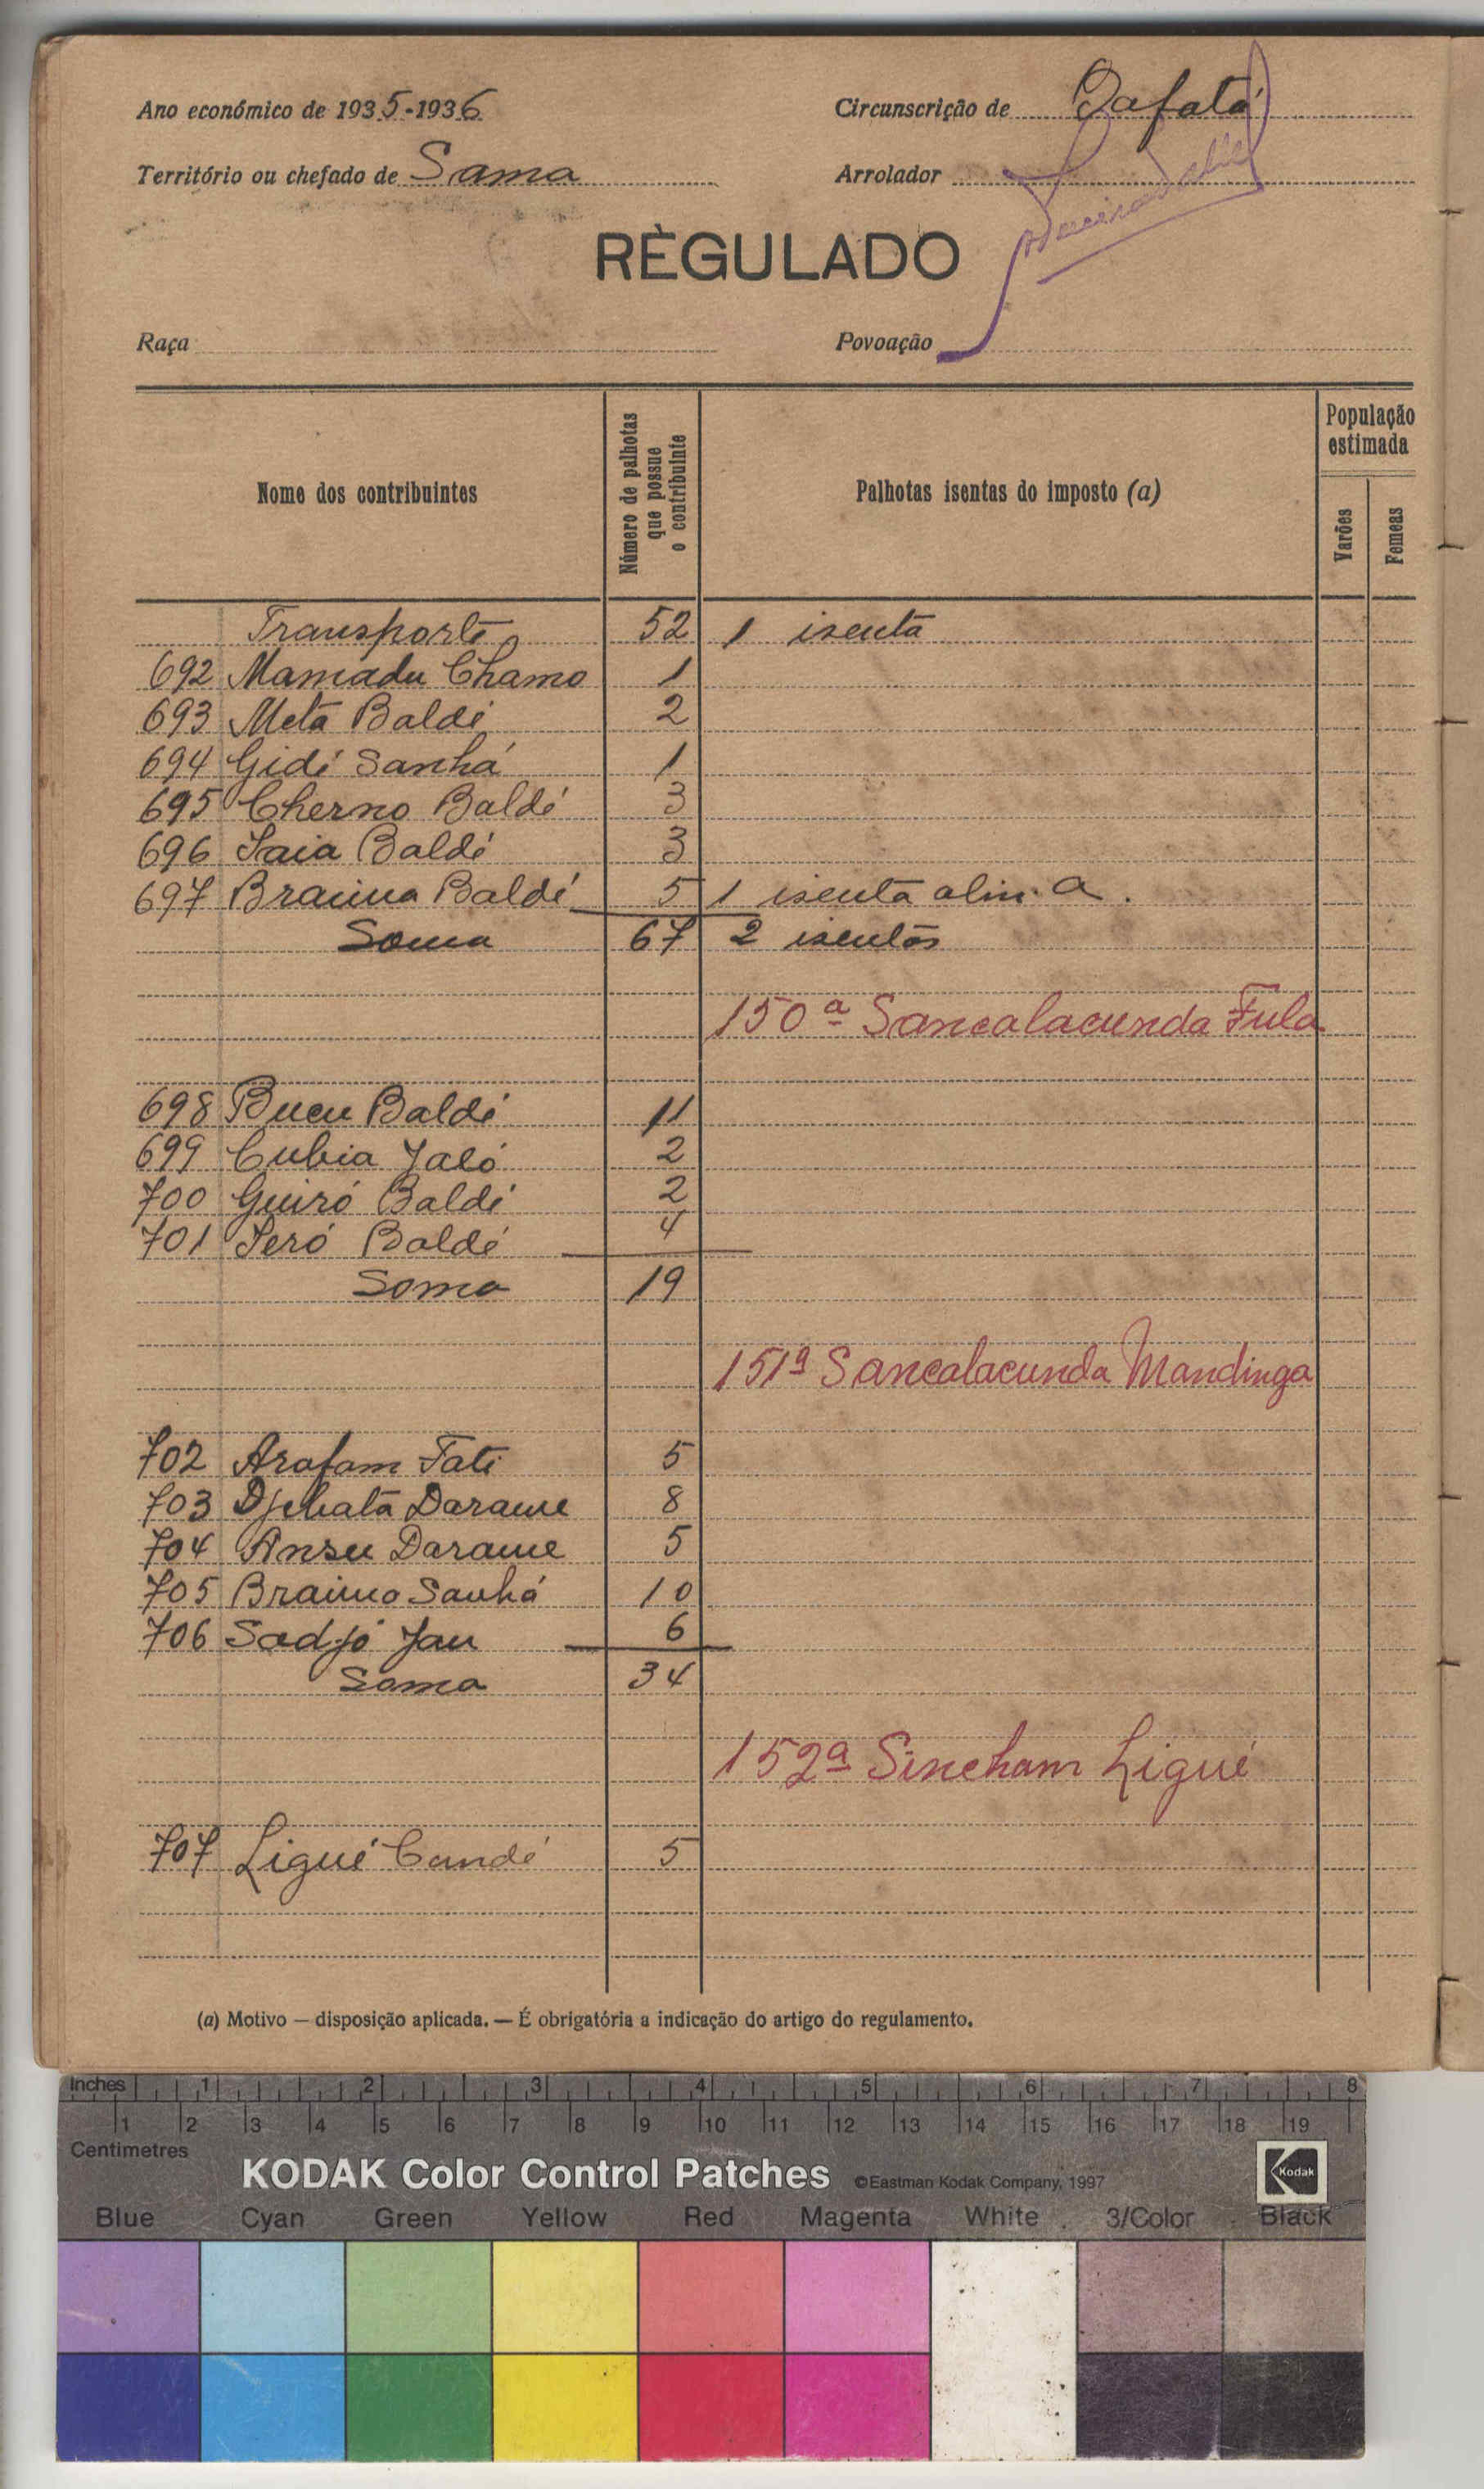 Ano económico de 1935-1936 Circunscrição de Bafatá
Território ou chefado de Sama Arrolador
RÈGULADO
Raça Povoação
Nome dos contribuintes Número de palhotas que possue o contribuinte Palhotas isentas do imposto (a) População estimada
Varões Femeas
Transporte 52 1 isenta
692 Mamadu Chamo 1
693 Metá Baldé 2
694 Gidé Sanhá 1
695 Cherno Baldé 3
696 Saia Baldé 3
697 Braima Baldé 5 1 isenta alin. a.
Soma 67 2 isentas
150ª Sancalacunda Fula
698 Bucu Baldé 11
699 Cubia Jaló 2
700 Guiró Baldé 2
701 Seró Baldé 4
Soma 19
151ª Sancalacunda Mandinga
702 Arafam Fati 5
703 Djebatá Darame 8
704 Ansu Darame 5
705 Braima Sanhá 10
706 Sadjó Jau 6
Soma 34
152ª Sincham Ligué
707 Ligué Candé 5
(a) Motivo — disposição aplicada. — É obrigatória a indicação do artigo do regulamento.
Inches 1 2 3 4 5 6 7 8
1 2 3 4 5 6 7 8 9 10 11 12 13 14 15 16 17 18 19
Centimetres
KODAK Color Control Patches ©Eastman Kodak Company, 1997 Kodak
Blue Cyan Green Yellow Red Magenta White 3/Color Black